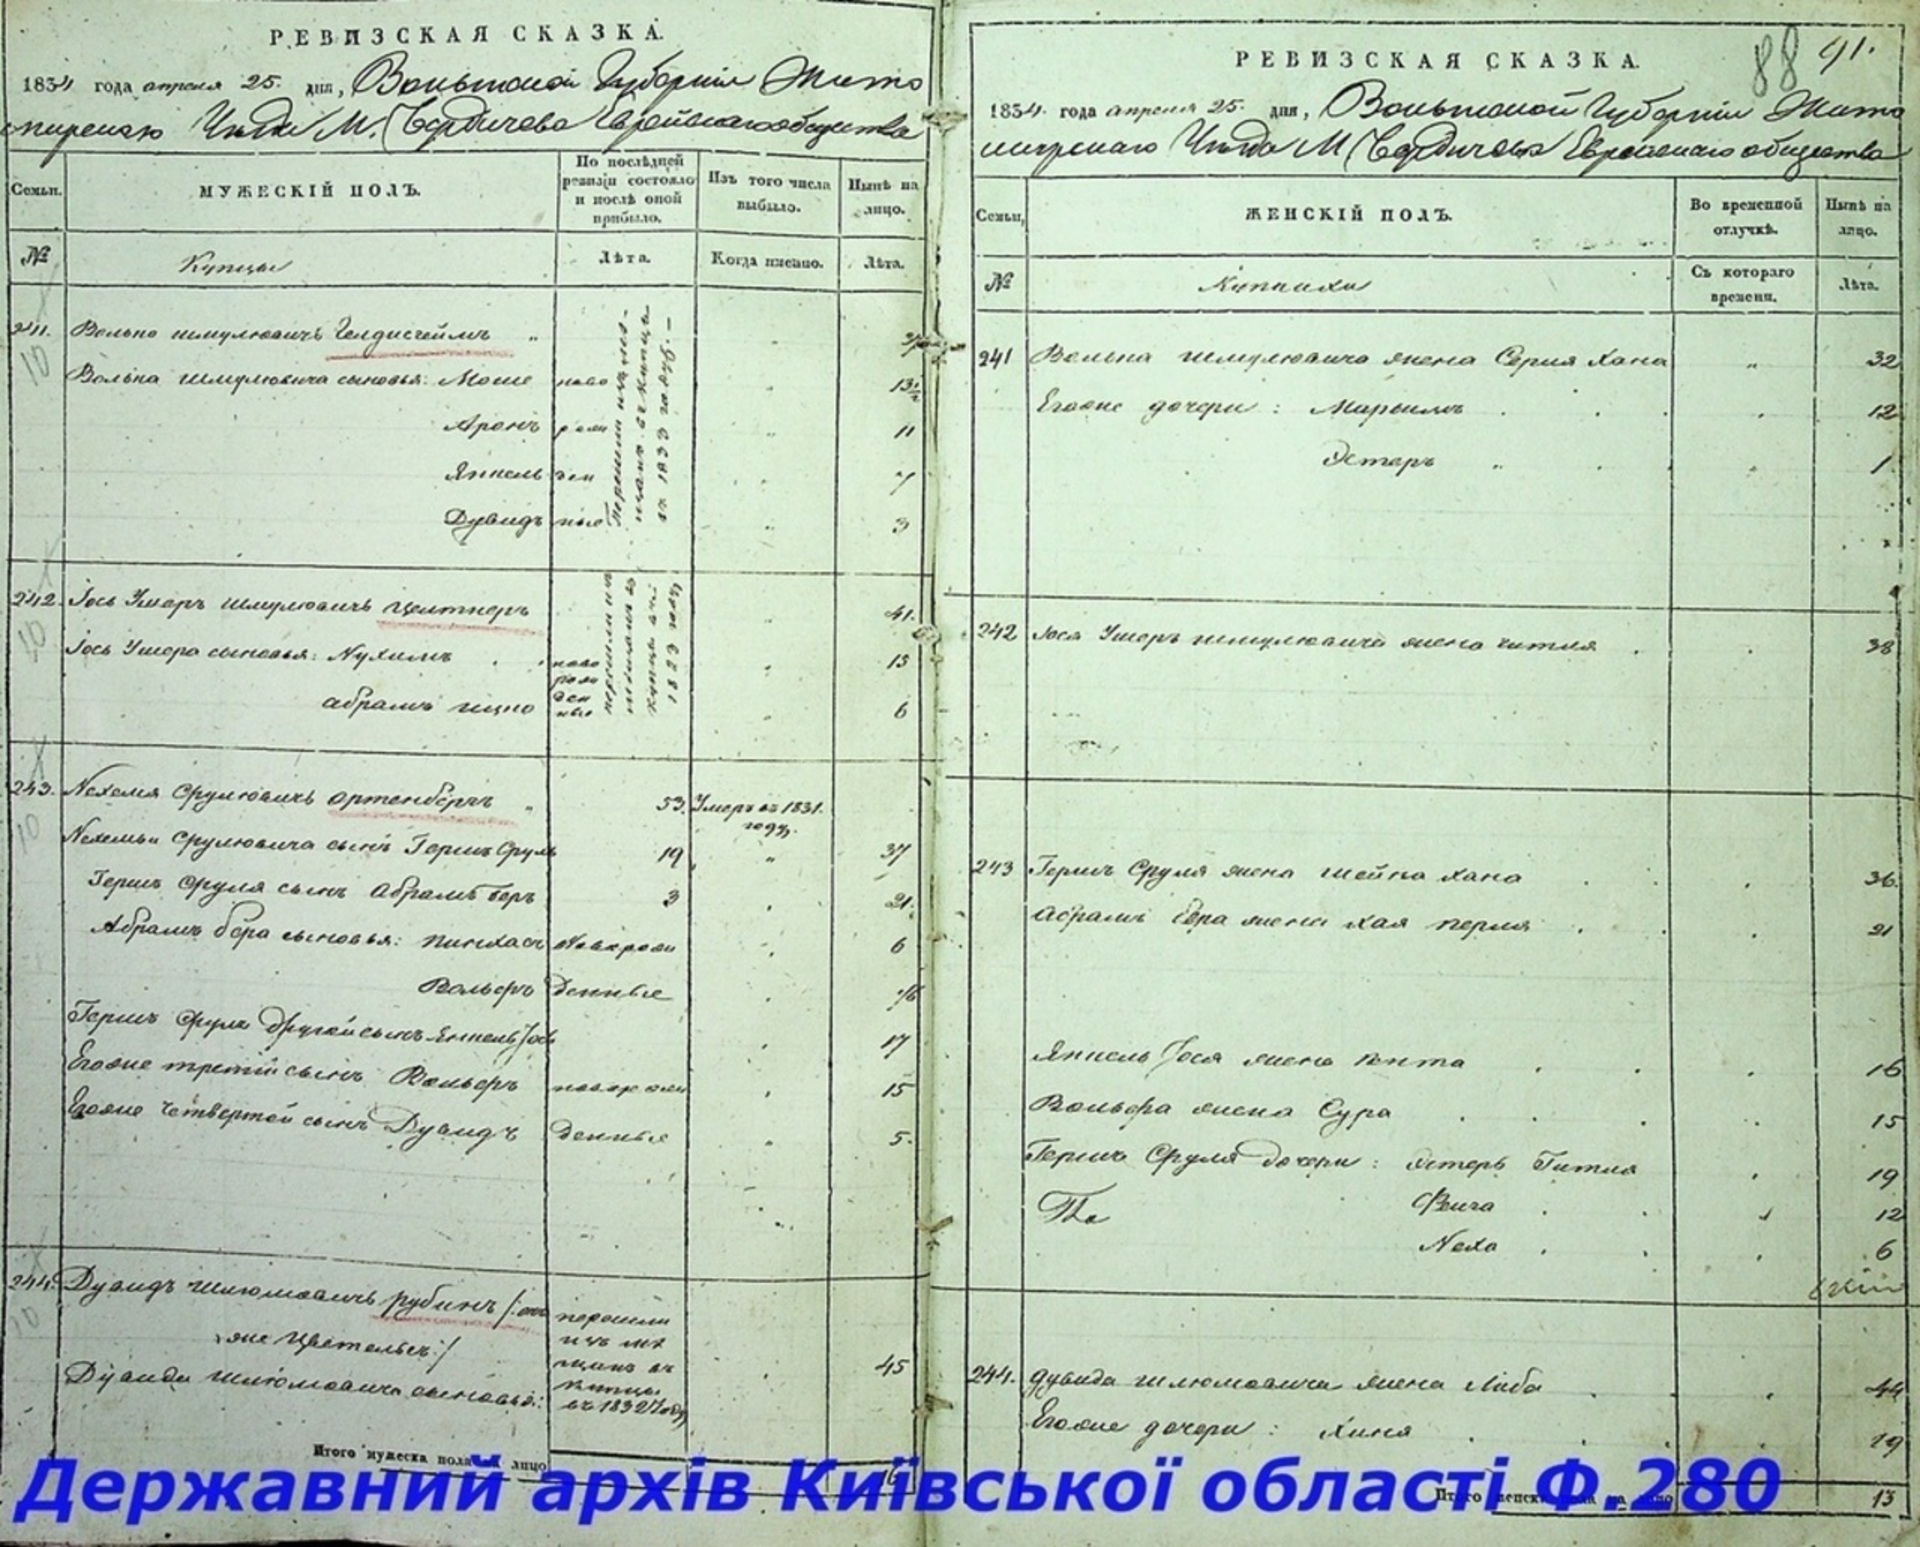 РЕВИЗСКАЯ СКАЗКА.
1834 года апреля 25. дня, Волынской Губерніи Жито
мирскаго Уезда М. Бердичева Еврейскаго общества
Семьи.
МУЖЕСКІЙ ПОЛЪ.
По послѣдней ревизіи состояло и послѣ оной прибыло.
Изъ того числа выбыло.
Нынѣ на лицо.
№
Купцы
Лѣта.
Когда писано.
Лѣта.
241. Волько Шмулювичъ
Волька Шмулювича сыновья: Моше ново 13½
Аронъ рож 11
Янкель ден 7
Дувидъ ные 3
Перешли из мещанъ въ купцы въ 1833 году.
242. Іось Умеръ Шмулювичъ Цейтнеръ 41.
Іось Умера сыновья: Нухимъ ново 13
рож
ден
ные
Абрамъ Ицко 6
перешли изъ мещанъ въ купцы въ 1833 году
243. Нехемя Срулювичъ Ортенбергъ 53. Умеръ въ 1831.
году.
Нехемьи Срулювича сынъ Гершъ Сруль 19 37
Гершъ Сруля сынъ Абрамъ Беръ 3 21.
Абрамъ Бера сыновья: Пинхасъ Новорож 6
Вольфъ денные
Гершъ Сруля другой сынъ Янкель Іось 17
Егоже третій сынъ Вольфъ новорож 15
Егоже четвертой сынъ Дувидъ денные 5.
244. Дувидъ Шлюмовичъ Рубинъ /: онъ
же
45
перешли
изъ ме
щанъ въ
купцы
въ 1832 году
Дувида Шлюмовича сыновья:
Итого мужеска пола на лицо 16
РЕВИЗСКАЯ СКАЗКА.
88 91.
1834. года апреля 25. дня, Волынской Губерніи Жито
мирскаго Уезда М Бердичева Еврейскаго общества
Семьи,
ЖЕНСКІЙ ПОЛЪ.
Во временной отлучкѣ.
Нынѣ на лицо.
№
Купчихи
Съ котораго времени.
Лѣта.
241 Волька Шмулювича жена Серия Хана 32
Егоже дочери: Марьямъ 12
Эстеръ 1
242 Іося Умеръ Шмулювича жена Гитля 38
243 Гершъ Сруля жена Шейна Хана 36.
Абрамъ Бера жена Хая Перля 21
Янкель Іося жена Пита 16
Вольфа жена Сура 15
Гершъ Сруля дочери: Эстеръ Гитля 19
Фейга 12
Неха 6
244. Дувида Шлюмовича жена Либа 44
Егоже дочери: Хиня 19
Итого женска пола на лицо 13
Державний архів Київської області Ф.280